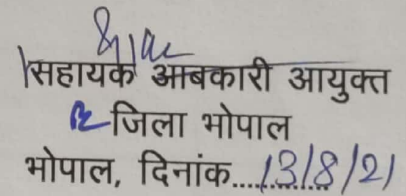 सहायक आबकारी आयुक्त
जिला भोपाल
भोपाल, दिनांक....13/8/21